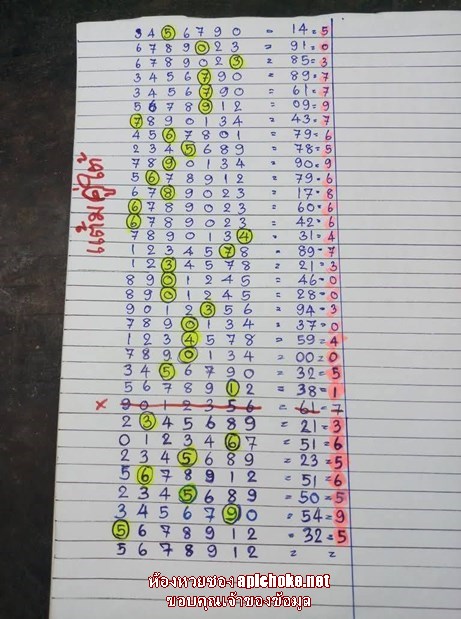 3 4 5 6 7 9 0 = 14 = 5
6 7 8 9 0 2 3 = 91 = 0
6 7 8 9 0 2 3 = 85 = 3
3 4 5 6 7 9 0 = 89 = 7
3 4 5 6 7 9 0 = 61 = 7
5 6 7 8 9 1 2 = 09 = 9
7 8 9 0 1 3 4 = 43 = 7
4 5 6 7 8 0 1 = 79 = 6
2 3 4 5 6 8 9 = 78 = 5
7 8 9 0 1 3 4 = 90 = 9
5 6 7 8 9 1 2 = 79 = 6
6 7 8 9 0 2 3 = 17 = 8
6 7 8 9 0 2 3 = 60 = 6
6 7 8 9 0 2 3 = 42 = 6
7 8 9 0 1 3 4 = 31 = 4
1 2 3 4 5 7 8 = 89 = 7
1 2 3 4 5 7 8 = 21 = 3
8 9 0 1 2 4 5 = 46 = 0
8 9 0 1 2 4 5 = 28 = 0
9 0 1 2 3 5 6 = 94 = 3
7 8 9 0 1 3 4 = 37 = 0
1 2 3 4 5 7 8 = 59 = 4
7 8 9 0 1 3 4 = 00 = 0
3 4 5 6 7 9 0 = 32 = 5
5 6 7 8 9 1 2 = 38 = 1
x 9 0 1 2 3 5 6 = 61 = 7
2 3 4 5 6 8 9 = 21 = 3
0 1 2 3 4 6 7 = 51 = 6
2 3 4 5 6 8 9 = 23 = 5
5 6 7 8 9 1 2 = 51 = 6
2 3 4 5 6 8 9 = 50 = 5
3 4 5 6 7 9 0 = 54 = 9
5 6 7 8 9 1 2 = 32 = 5
5 6 7 8 9 1 2 = =
แต้มคู่ใต้
ห้องหวยซอง apichoke.net
ขอบคุณเจ้าของข้อมูล